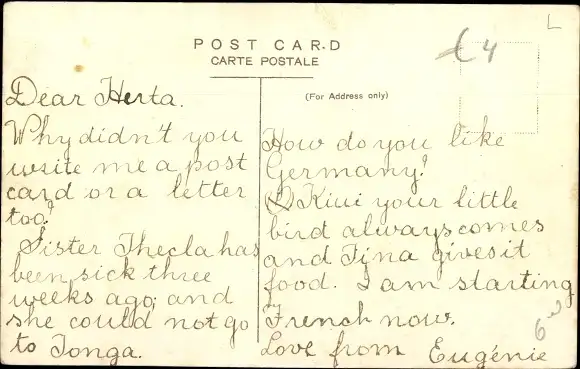 POST CARD
CARTE POSTALE
(For Address only)
L
£4
Dear Herta.
Why didn't you
write me a post
card or a letter
too?
Sister Thecla has
been sick three
weeks ago; and
she could not go
to Tonga.
How do you like
Germany?
Kiwi your little
bird always comes
and Tina gives it
food. I am starting
French now.
Love from Eugénie